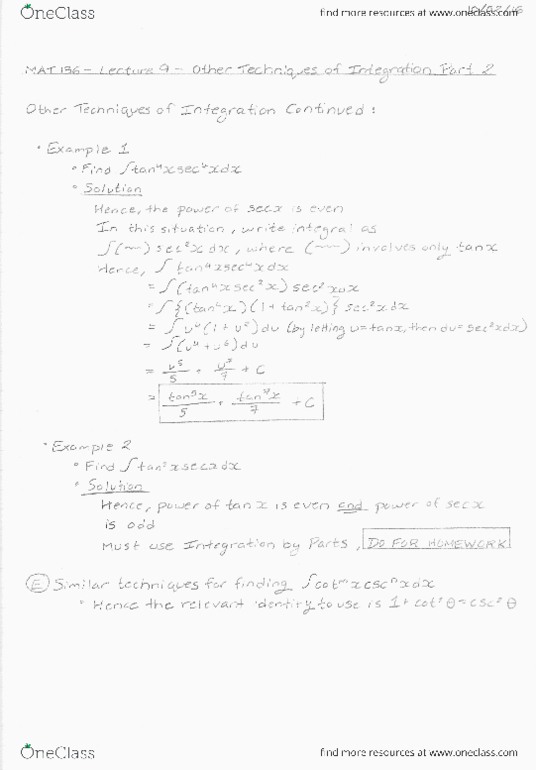 OneClass
find more resources at www.oneclass.com
MAT136 - Lecture 9 - Other Techniques of Integration Part 2
Other Techniques of Integration Continued:
• Example 1
• Find ∫tan⁴xsec⁴xdx
• Solution
Hence, the power of secx is even
In this situation, write integral as
∫(~~) sec²x dx, where (~~) involves only tanx
Hence, ∫tan⁴xsec⁴xdx
= ∫(tan⁴xsec²x) sec²xdx
= ∫{(tan⁴x)(1+tan²x)} sec²xdx
= ∫u⁴(1+u²)du (by letting u=tanx, then du=sec²xdx)
= ∫(u⁴+u⁶)du
= u⁵/5 + u⁷/7 + C
= tan⁵x/5 + tan⁷x/7 + C
• Example 2
• Find ∫tan²xsecxdx
• Solution
Hence, power of tanx is even and power of secx
is odd
Must use Integration by Parts, DO FOR HOMEWORK
E Similar techniques for finding ∫cotᵐxcscⁿxdx
• Hence the relevant identity to use is 1+cot²θ=csc²θ
OneClass
find more resources at www.oneclass.com